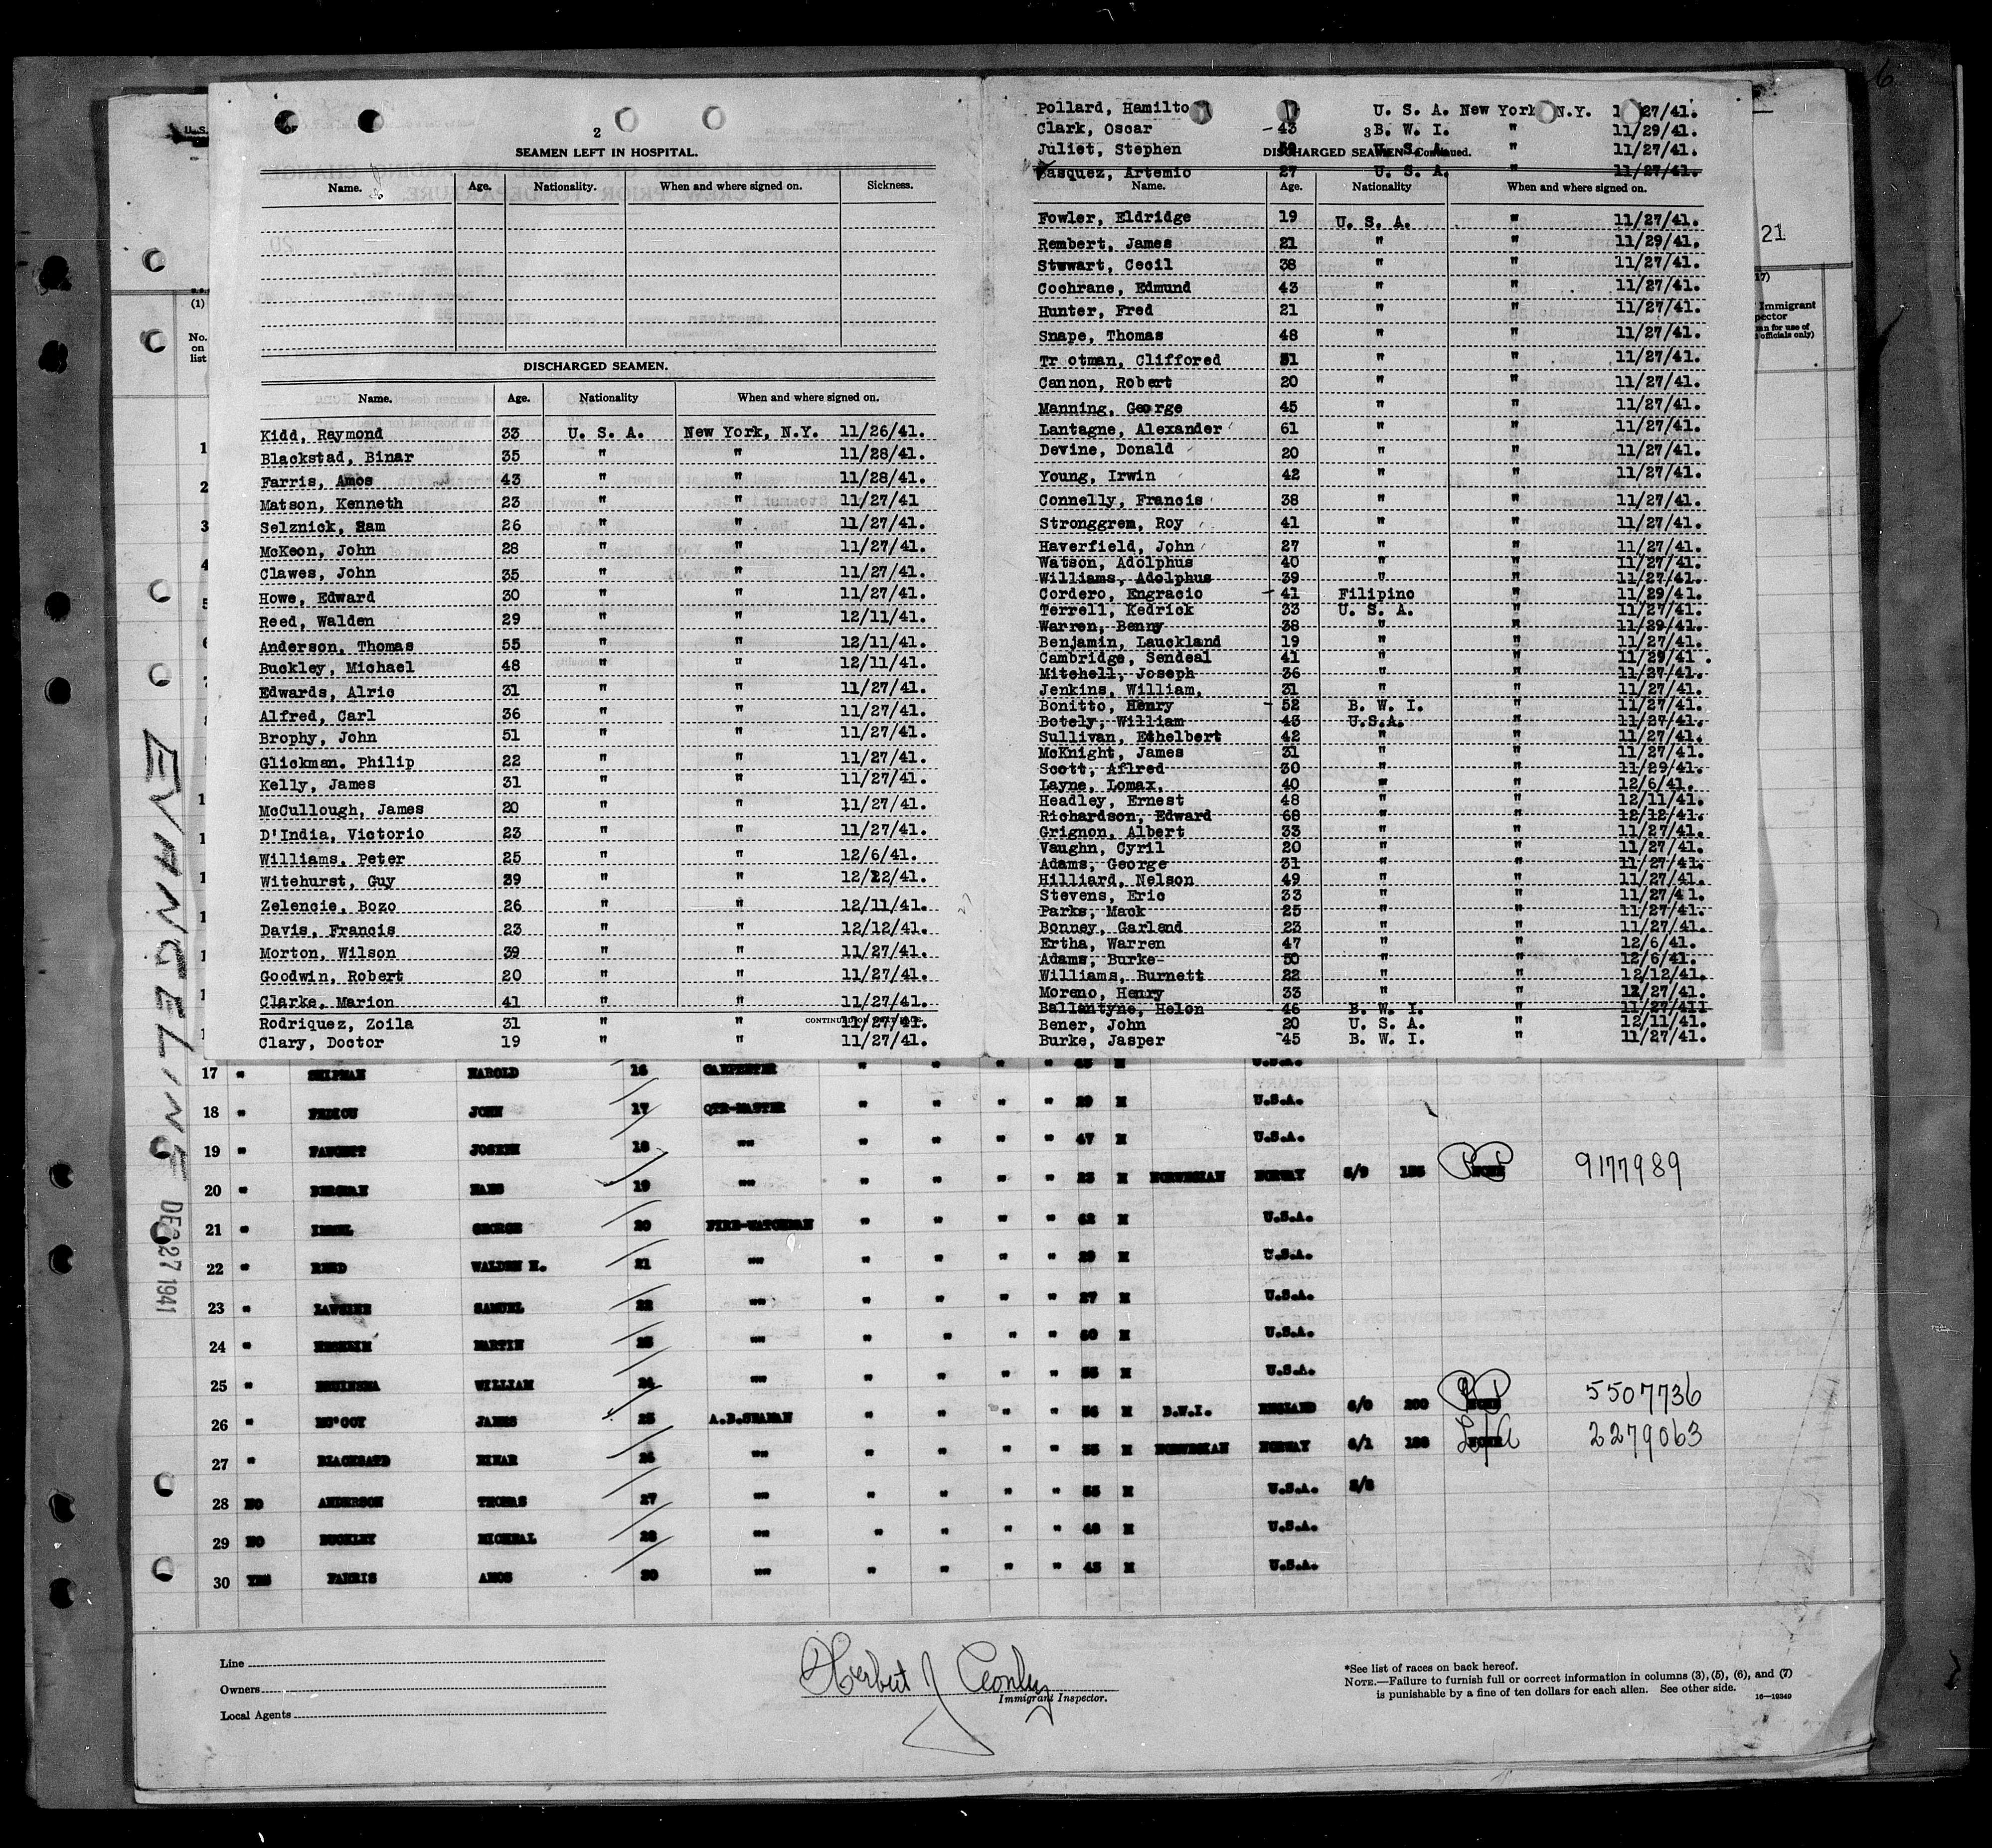 2
SEAMEN LEFT IN HOSPITAL.
Name. Age. Nationality. When and where signed on. Sickness.
DISCHARGED SEAMEN.
Name. Age. Nationality When and where signed on.
Kidd, Raymond 33 U. S. A. New York, N.Y. 11/26/41.
Blackstad, Binar 35 " " 11/28/41.
Farris, Amos 43 " " 11/28/41.
Matson, Kenneth 23 " " 11/27/41
Selznick, Sam 26 " " 11/27/41.
McKeon, John 28 " " 11/27/41.
Clawes, John 35 " " 11/27/41.
Howe, Edward 30 " " 11/27/41.
Reed, Walden 29 " " 12/11/41.
Anderson, Thomas 55 " " 12/11/41.
Buckley, Michael 48 " " 12/11/41.
Edwards, Alric 31 " " 11/27/41.
Alfred, Carl 36 " " 11/27/41.
Brophy, John 51 " " 11/27/41.
Glickman. Philip 22 " " 11/27/41.
Kelly, James 31 " " 11/27/41.
McCullough, James 20 " " 11/27/41.
D'India, Victorio 23 " " 11/27/41.
Williams, Peter 25 " " 12/6/41.
Witehurst, Guy 39 " " 12/22/41.
Zelencie, Bozo 26 " " 12/11/41.
Davis, Francis 23 " " 12/12/41.
Morton, Wilson 39 " " 11/27/41.
Goodwin, Robert 20 " " 11/27/41.
Clarke, Marion 41 " " 11/27/41.
Rodriquez, Zoila 31 " " 11/27/41.
Clary, Doctor 19 " " 11/27/41.
Pollard, Hamilto U. S. A. New York N.Y. 11/27/41.
Clark, Oscar -43 3B. W. I. " 11/29/41.
Juliet, Stephen U. S. A. " 11/27/41.
DISCHARGED SEAMEN—Continued.
Vasquez, Artemio 27 U. S. A. " 11/27/41.
Name. Age. Nationality When and where signed on.
Fowler, Eldridge 19 U. S. A. " 11/27/41.
Rembert, James 21 " " 11/29/41.
Stwwart, Cecil 38 " " 11/27/41.
Cochrane, Edmund 43 " " 11/27/41.
Hunter, Fred 21 " " 11/27/41.
Snape, Thomas 48 " " 11/27/41.
Tr otman, Cliffored 31 " " 11/27/41.
Cannon, Robert 20 " " 11/27/41.
Manning, George 45 " " 11/27/41.
Lantagne, Alexander 61 " " 11/27/41.
Devine, Donald 20 " " 11/27/41.
Young, Irwin 42 " " 11/27/41.
Connelly, Francis 38 " " 11/27/41.
Stronggren, Roy 41 " " 11/27/41.
Haverfield, John 27 " " 11/27/41.
Watson, Adolphus 40 " " 11/27/41.
Williams, Adolphus 39 " " 11/27/41.
Cordero, Engracio -41 Filipino " 11/29/41.
Terrell, Kedrick 33 U. S. A. " 11/27/41.
Warren, Benny 38 " " 11/29/41.
Benjamin, Lauckland 19 " " 11/27/41.
Cambridge, Sendeal 41 " " 11/29/41.
Mitchell, Joseph 36 " " 11/27/41.
Jenkins, William, 31 " " 11/27/41.
Bonitto, Henry -52 B. W. I. " 11/27/41.
Botely, William 43 U.S.A. " 11/27/41.
Sullivan, Ethelbert 42 " " 11/27/41.
McKnight, James 31 " " 11/27/41.
Scott, Aflred 30 " " 11/29/41.
Layne, Lomax, 40 " " 12/6/41.
Headley, Ernest 48 " " 12/11/41.
Richardson, Edward 68 " " 12/12/41.
Grignon, Albert 33 " " 11/27/41.
Vaughn, Cyril 20 " " 11/27/41.
Adams, George 31 " " 11/27/41.
Hilliard, Nelson 49 " " 11/27/41.
Stevens, Eric 33 " " 11/27/41.
Parks, Mack 25 " " 11/27/41.
Bonney, Garland 23 " " 11/27/41.
Ertha, Warren 47 " " 12/6/41.
Adams, Burke 50 " " 12/6/41.
Williams, Burnett 22 " " 12/12/41.
Moreno, Henry 33 " " 12/27/41.
Ballantyne, Helon 46 B. W. I. " 11/27/41
Bener, John 20 U. S. A. " 12/11/41.
Burke, Jasper -45 B. W. I. " 11/27/41.
6
21
(1)
No. on list
Immigrant
EVANGELINE DEC 27 1941
17 " SHIPMAN HAROLD 16 CARPENTER " " " " 45 M U.S.A.
18 " JOHN 17 QTR-MASTER " " " " 29 M U.S.A.
19 " FAWCETT JOSEPH 18 "" " " " " 47 M U.S.A.
20 " HANS 19 "" " " " " 23 M NORWEGIAN NORWAY 5/9 155 NONE 9177989
21 " GEORGE 20 FIRE-WATCHMAN " " " " 62 M U.S.A.
22 " REED WALDEN H. 21 "" " " " " 29 M U.S.A.
23 " SAMUEL 22 "" " " " " 27 M U.S.A.
24 " MARTIN 23 "" " " " " 60 M U.S.A.
25 " WILLIAM 24 "" " " " " 55 M U.S.A.
26 " MC'COY JAMES 25 A.B.SEAMAN " " " " 56 M B.W.I. ENGLAND 6/0 200 NONE 5507736
27 " BLACKSATD BINAR 26 "" " " " " 35 M NORWEGIAN NORWAY 6/1 188 NONE 2279063
28 NO ANDERSON THOMAS 27 "" " " " " 55 M U.S.A. 5/8
29 NO BUCKLEY MICHEAL 28 "" " " " " 48 M U.S.A.
30 YES FARRIS AMOS 30 "" " " " " 43 M U.S.A.
Line
Owners
Local Agents
Herbert J Conley
Immigrant Inspector.
*See list of races on back hereof.
NOTE.—Failure to furnish full or correct information in columns (3), (5), (6), and (7)
is punishable by a fine of ten dollars for each alien. See other side.
16—19349